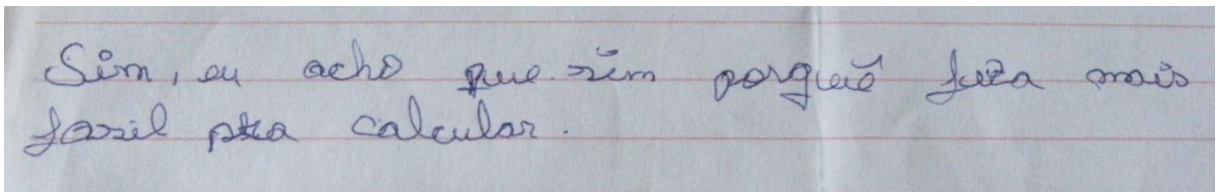 Sim, eu acho que sim porquê fica mais
facil pra calcular.